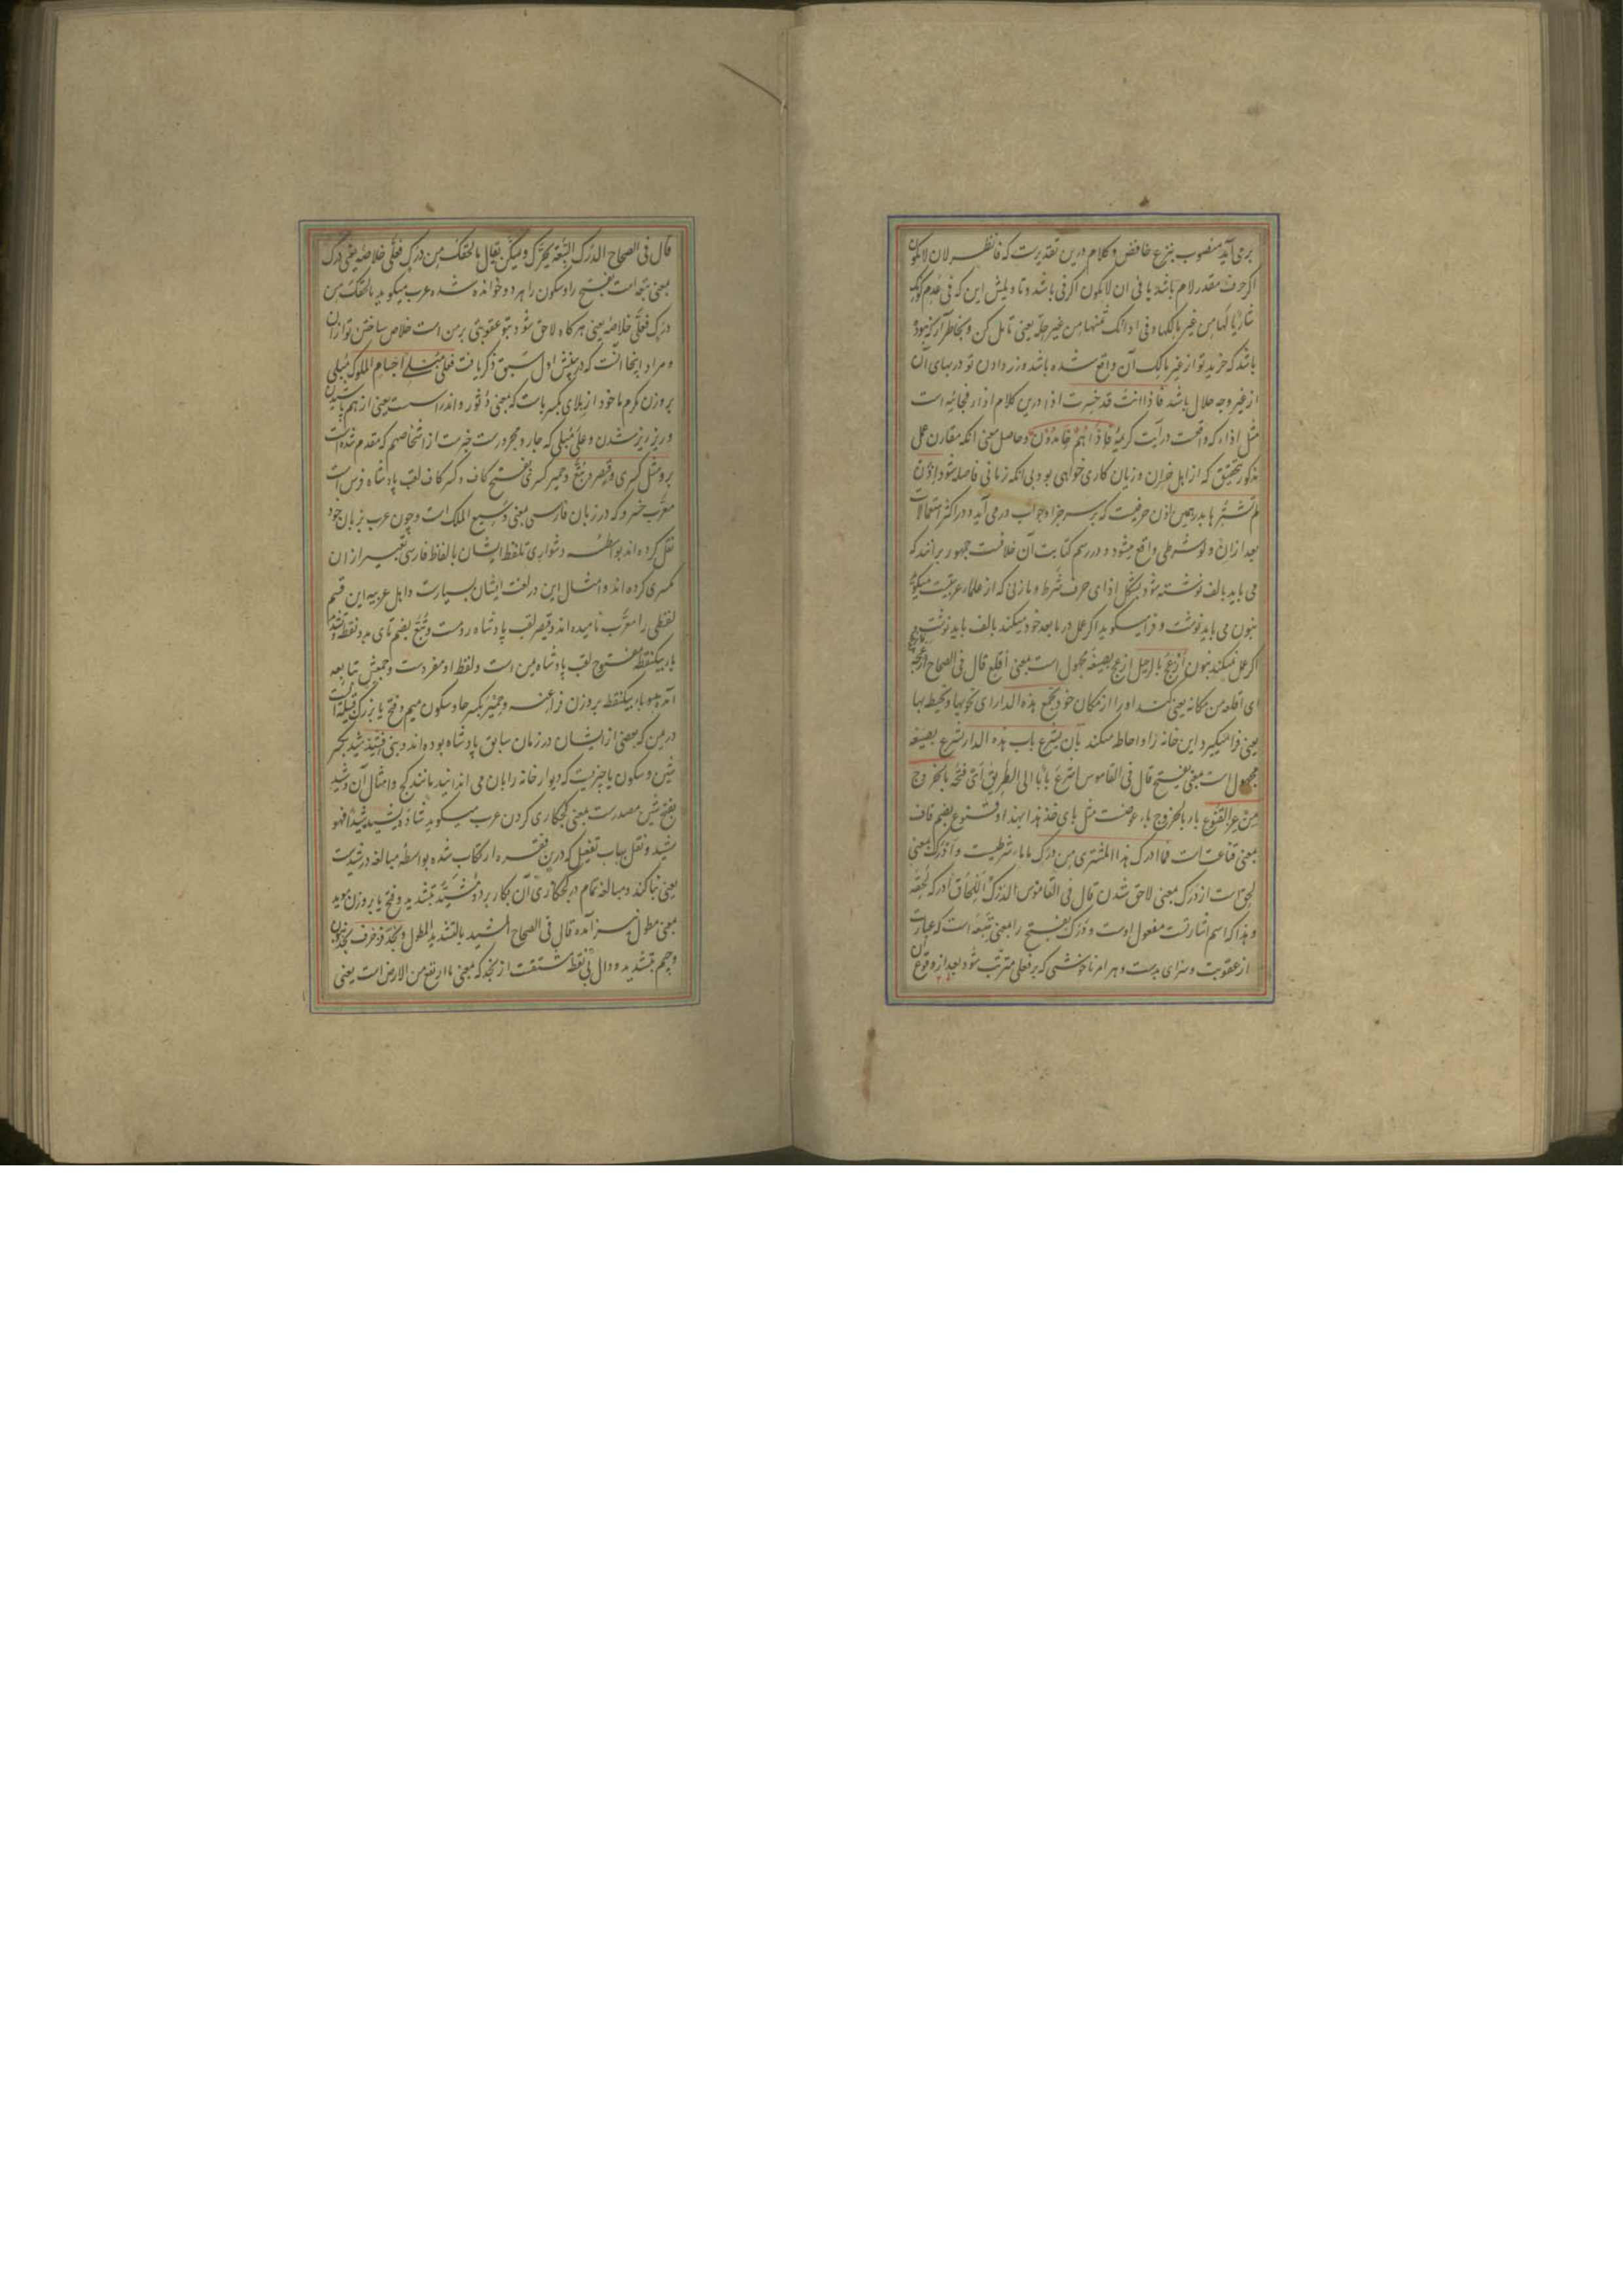 برمی‌آید منصوب بنزع خافض و کلام درین تقدیرست که فانظر لان لا تکون
اکر حرف مقدر لام باشد یا فی ان لا تکون اکر فی باشد و تاویلش این که فی عدم کونک
شاریا لها من غیر مالکها و فی ادائک ثمنها من غیر حله یعنی تامل کن و بخاطر آر که نبوده
باشد که خرید تو از غیر مالک آن واقع شده باشد و زر دادن تو در بهای آن
از غیر وجه حلال باشد فاذا انت قد خسرت اذا درین کلام اذا فجائیه است
مثل اذاء که واقعست در آیت کریمهٔ فاذا هم خامدون و حاصل معنی انکه مقارن عمل
مذکور بتحقیق که از اهل خسران و زیان کاری خواهی بود بی انکه زمانی فاصله شود و اذن
لم تشترها بدرهمین اذن حرفیست که بر سر جزا و جواب درمی‌آید و در اکثر استعمالات
بعد از ان و لو شرطی واقع میشود و در رسم کتابت آن خلافست جمهور برانند که
می باید بالف نوشته شود بشکل اذای حرف شرط و مازنی که از علماء عربیت است میکوید
بنون می باید نوشت و فرا میکوید اکر عمل در مابعد خود میکند بالف باید نوشت و
اکر عمل نمیکند بنون ازعج بالرحیل ازعج بصیغهٔ مجهول است بمعنی اقلع قال فی الصحاح ازعجه
ای اقلعه من مکانه یعنی کند او را از مکان خود تجمع هذه الدار ای تحویها و تحیط بها
یعنی فرا میکیرد این خانه را و احاطه میکند بان یشرع باب هذه الدار یشرع بصیغه
مجهول است بمعنی یفتح قال فی القاموس اشرع بابا الی الطریق ای فتحه بالخروج
من عز القنوع باء بالخروج باء عوضست مثل بای خذ هذا بهذا و قنوع بضم قاف
بمعنی قناعت است فما ادرک هذا المشتری من درک ما ماء شرطیست و ادرک بمعنی
لحق است از درک بمعنی لاحق شدن قال فی القاموس الدرک اللحاق ادرکه لحقه
و هذا که اسم اشارتست مفعول اوست و درک بفتح را بمعنی تبعه است که عبارت
از عقوبت و سزای بدست و هر امر ناخوشی که بر فعلی مترتب شود بعد از وقوع آن
قال فی الصحاح الدرک التبعة یحرک و یسکن یقال ما لحقک من درک فعلی خلاصه یعنی درک
بمعنی تبعه است بفتح را و سکون را هر دو خوانده شده عرب میکوید ما لحقک من
درک فعلی خلاصه یعنی هرکاه لاحق شود بتو عقوبتی بر من است خلاص ساختن تو از ان
و مراد اینجا آنست که در بینش اول سبق ذکر یافت فعلی مبلی اجسام الملوک مبلی
بروزن مکرم ماخوذ از بلای بکسر باست که بمعنی دثور و اندراس است یعنی از هم پاشیدن
و ریز ریز شدن و علی مبلی که جار و مجرورست خبرست از اشخاصهم که مقدم شده است
برو مثل کسری و قیصر و تبع و حمیر کسری بفتح کاف و کسر کاف لقب پادشاه فرس است
معرب خسرو که در زبان فارسی بمعنی وسیع الملک است و چون عرب بزبان خود
نقل کرده اند بواسطهٔ دشواری تلفظ ایشان بالفاظ فارسی تعبیر از ان
کسری کرده اند و امثال این در لغت ایشان بسیارست و اهل عربیه این قسم
لفظی را معرب نامیده اند و قیصر لقب پادشاه رومست و تبع بضم تای بدو نقطه و تشدید
باء بیکنقطه مفتوح لقب پادشاه یمن است و لفظ او مفردست و جمعش تبابعه
آمده بدو باء بیکنقطه بروزن فراعنه و حمیر بکسر حا و سکون میم و فتح یا بزرک قبیله است
در یمن که بعضی از ایشان در زمان سابق پادشاه بوده اند و بنی فشید شید بکسر
شین و سکون یا چیزیست که دیوار خانه را بان می اندایند مانند کچ و امثال آن و شید
بفتح شین مصدرست بمعنی کچکاری کردن عرب میکوید شاده یشیده شیدا فهو
مشید و نقل بباب تفعیل که درین فقره ارتکاب شده بواسطه مبالغه در شیدست
یعنی بنا کند و مبالغه تمام در کچکاری آن بکار برد و مشید بتشدید و فتح یا بروزن موید
بمعنی مطول نیز آمده قال فی الصحاح المشید بالتشدید المطول و نجد و زخرف نجد بنون
و جیم بتشدید و دال بی نقطه مشتقست از نجد که بمعنی ما ارتفع من الارض است یعنی